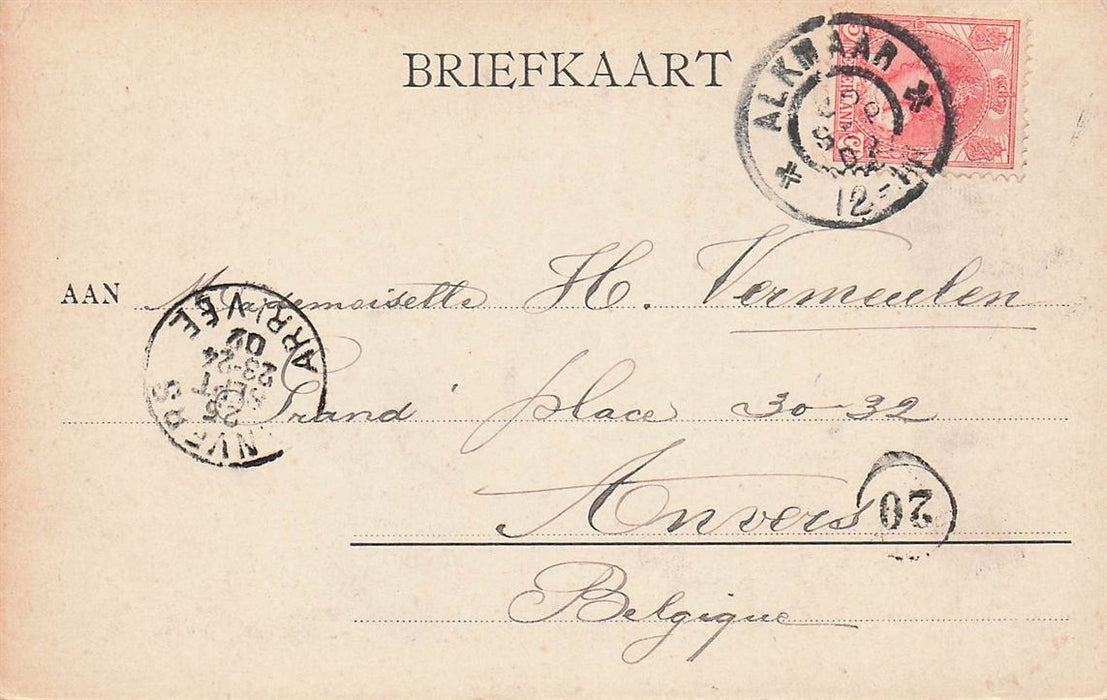 BRIEFKAART
ALKMAAR
12-
5 NEDERLAND Ct
AAN Mademoiselle H. Vermeulen
Grand' place 30-32
Anvers
Belgique
ANVERS
26
SEPT
23-24
02
ARRIVÉE
20